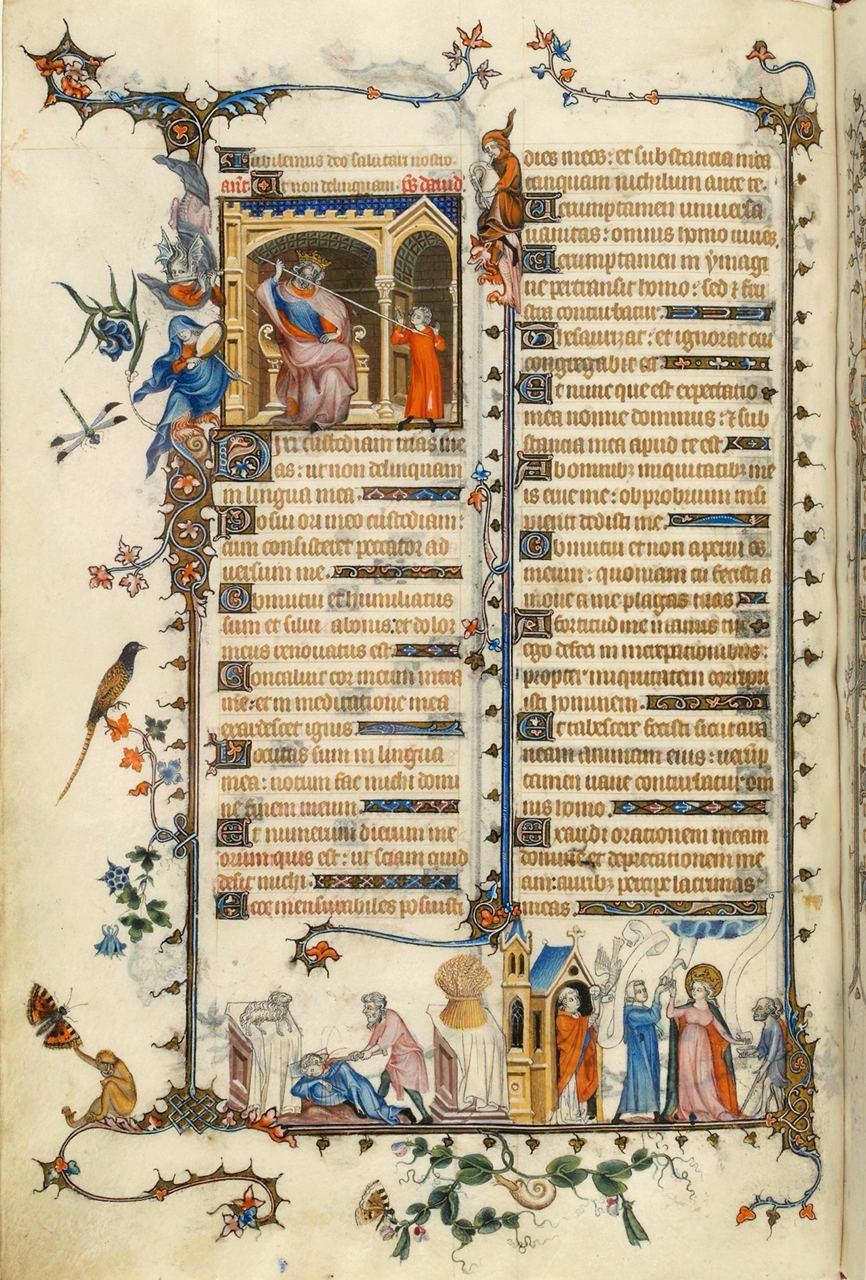 Iubilemus deo salutari nostro.
ant. Ut non delinquam. ps. david.
Dixi custodiam vias me
as: ut non delinquam
in lingua mea.
Posui ori meo custodiam:
cum consisteret peccator ad
versum me.
Obmutui et humiliatus
sum et silui a bonis: et dolor
meus renovatus est.
Concaluit cor meum intra
me: et in meditatione mea
exardescet ignis.
Locutus sum in lingua
mea: notum fac michi domi
ne finem meum.
Et numerum dierum me
orum quis est: ut sciam quid
desit michi.
Ecce mensurabiles posuisti
dies meos: et substancia mea
tanquam nichilum ante te.
Verumptamen universa
vanitas: omnis homo vivens.
Verumptamen in ymagi
ne pertransit homo: sed ⁊ frus
tra conturbatur.
Thesaurizat: et ignorat cui
congregabit ea.
Et nunc que est expectatio
mea nonne dominus: ⁊ sub
stancia mea apud te est.
Ab omnibꝫ iniquitatibꝫ me
is erue me: obprobrium insi
pienti dedisti me.
Obmutui et non aperui os
meum: quoniam tu fecisti a
move a me plagas tuas.
A fortitudine manus tue
ego defeci in increpationibus:
propter iniquitatem corripu
isti hominem.
Et tabescere fecisti sicut ara
neam animam eius: verump
tamen vane conturbatur om
nis homo.
Exaudi orationem meam
domine et deprecationem me
am: auribꝫ percipe lacrimas
meas.